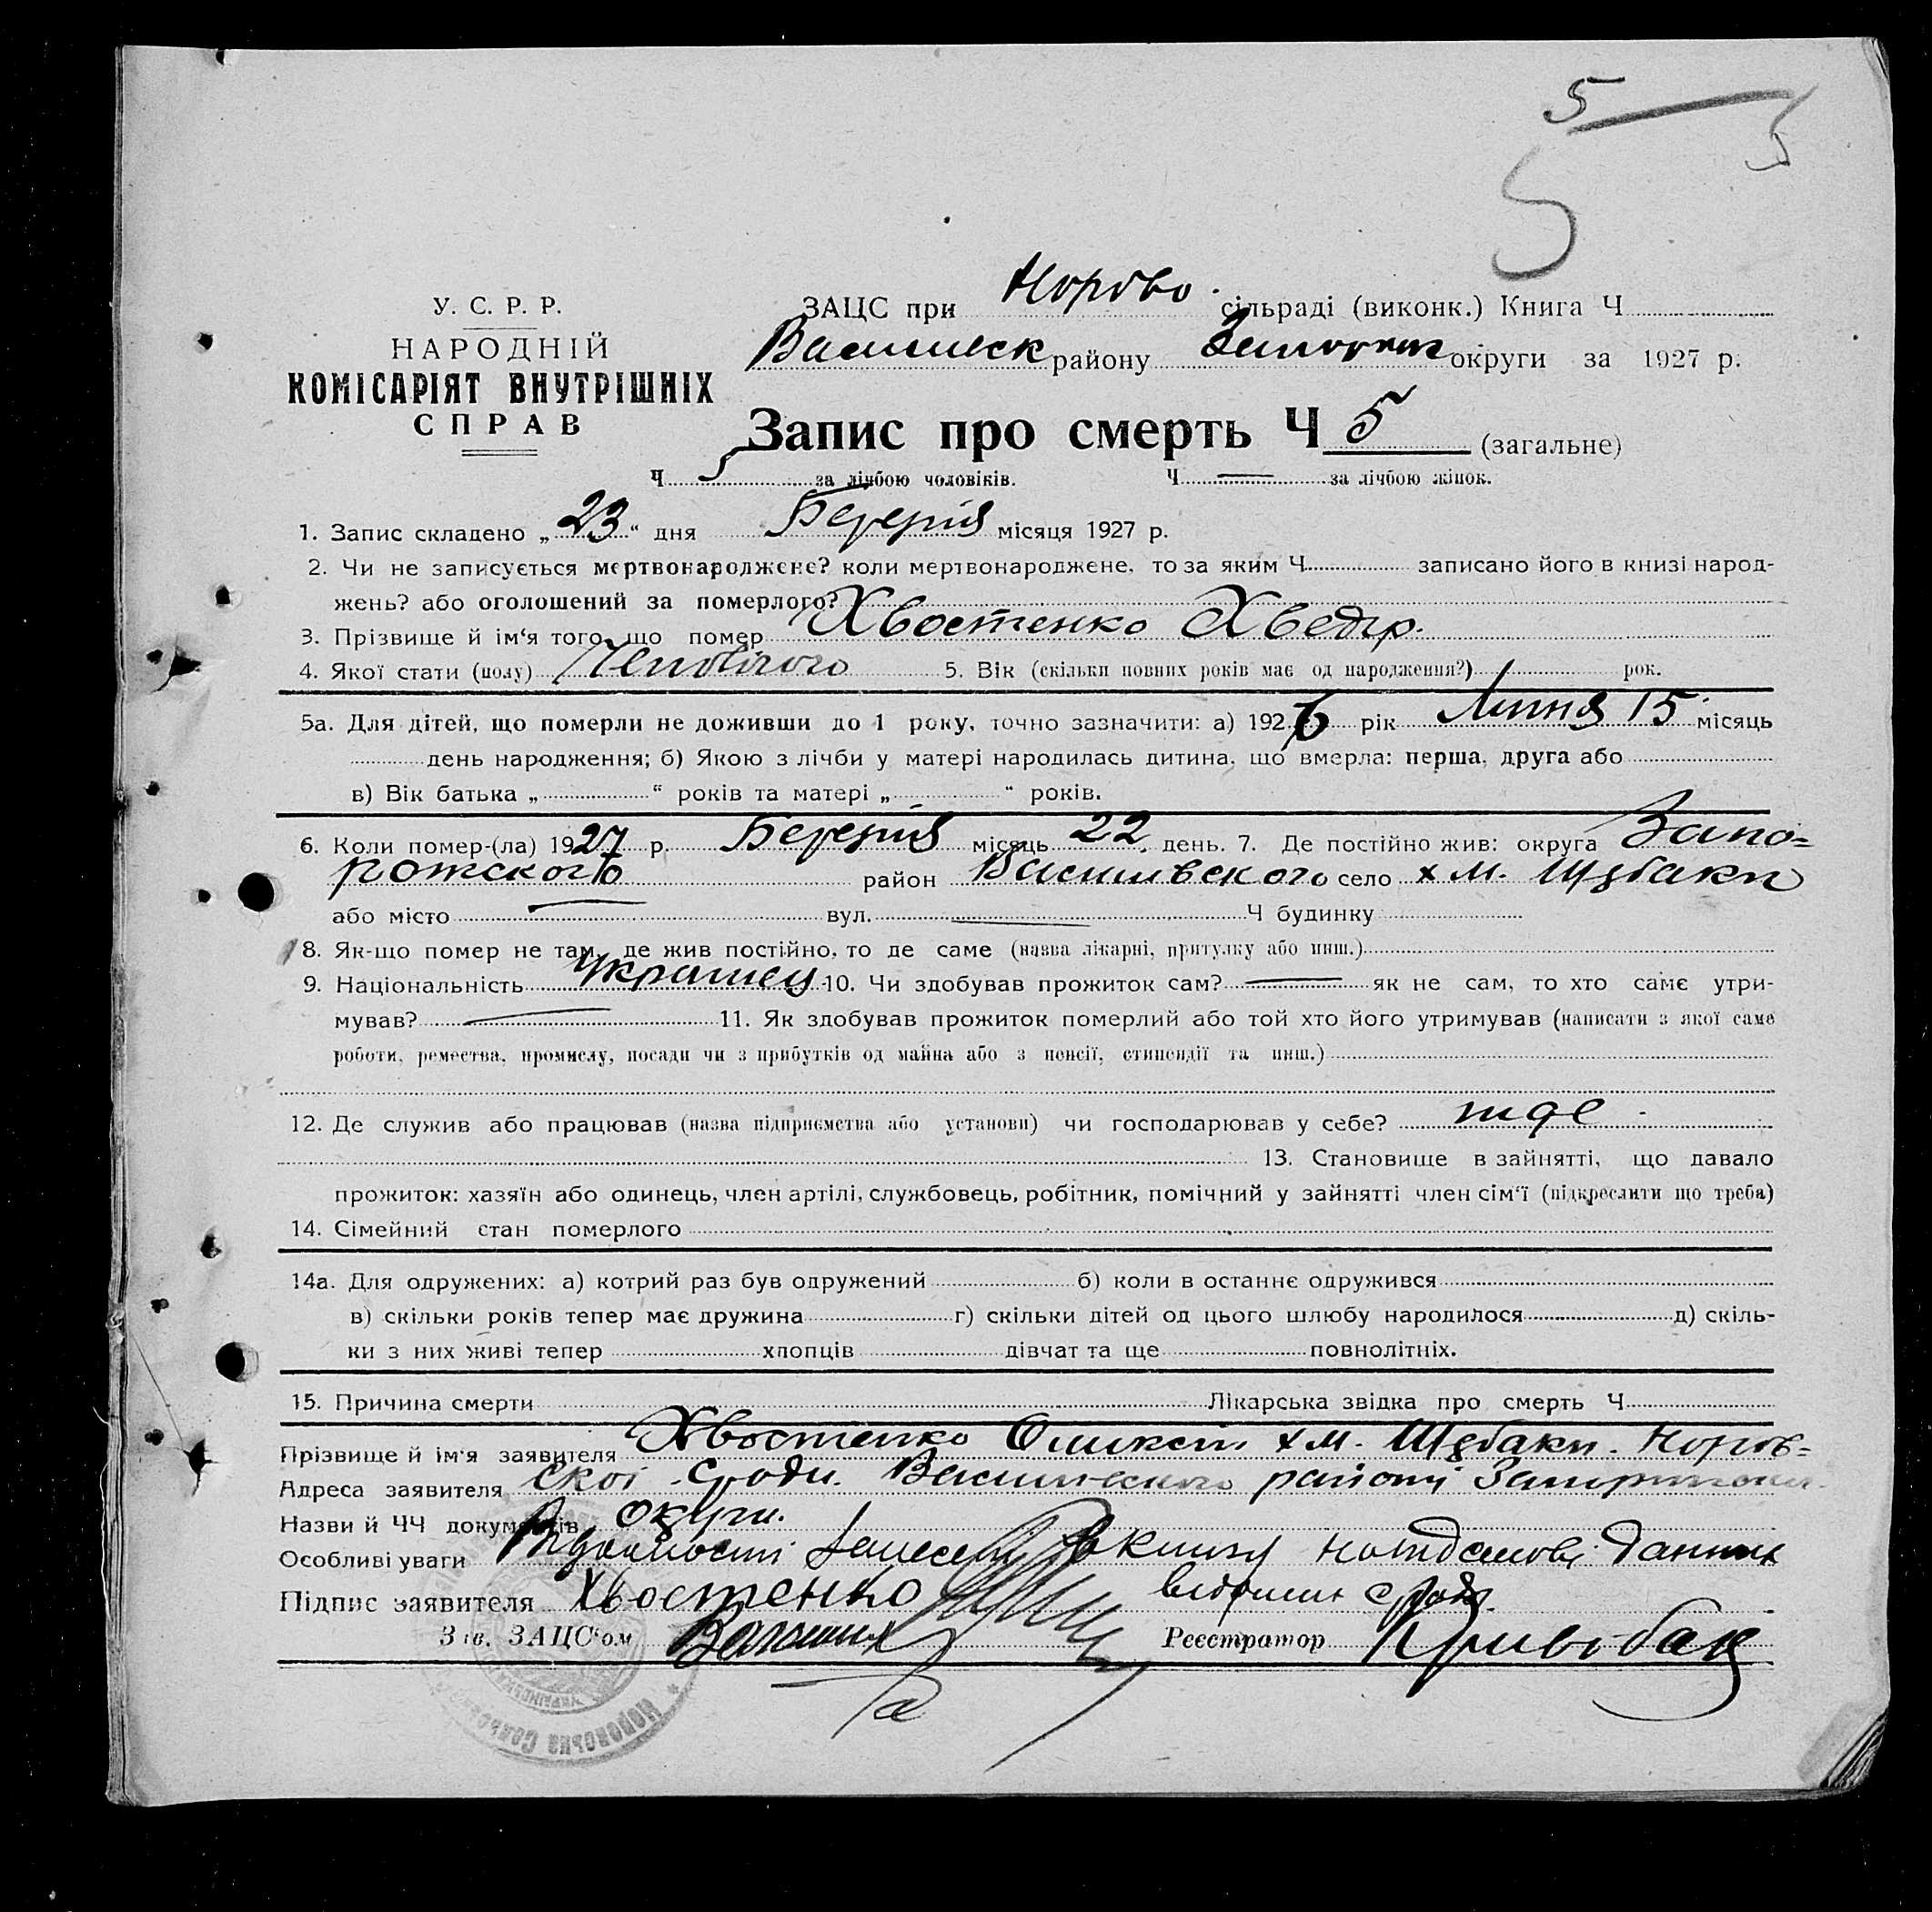 5
5
5
У. С. Р. Р.
НАРОДНІЙ
КОМІСАРІЯТ ВНУТРІШНІХ
СПРАВ
ЗАЦС при сільраді (виконк.) Книга Ч
Васильеск району округи за 1927 р.
Запис про смерть Ч 5 (загальне)
Ч 5 за лічбою чоловіків. Ч — за лічбою жінок.
1. Запис складено „ 23 “ дня місяця 1927 р.
2. Чи не записується мертвонароджене? коли мертвонароджене, то за яким Ч записано його в книзі народ-
жень? або оголошений за померлого?
3. Прізвище й ім‘я того, що помер Хвостенко Хведір.
4. Якої стати (полу) 5. Вік (скільки повних років має од народження?) рок.
5а. Для дітей, що померли не доживши до 1 року, точно зазначити: а) 192 6 рік Липня 15 місяць
день народження; б) Якою з лічби у матері народилась дитина, що вмерла: перша, друга або
в) Вік батька „ “ років та матері „ “ років.
6. Коли помер-(ла) 19 27 р. місяць 22 день. 7. Де постійно жив: округа Запо=
рожского район Васильевского село х м. Щубаки
або місто — вул. — Ч будинку
8. Як-що помер не там, де жив постійно, то де саме (назва лікарні, притулку або инш.)
9. Національність Украинец 10. Чи здобував прожиток сам? — як не сам, то хто саме утри-
мував? — 11. Як здобував прожиток померлий або той хто його утримував (написати з якої саме
роботи, ремества, промислу, посади чи з прибутків од майна або з пенсії, стипендії та инш.)
12. Де служив або працював (назва підприємства або установи) чи господарював у себе?
13. Становище в зайнятті, що давало
прожиток: хазяїн або одинець, член артілі, службовець, робітник, помічний у зайнятті член сім‘ї (підкреслити що треба)
14. Сімейний стан померлого
14а. Для одружених: а) котрий раз був одружений б) коли в останнє одружився
в) скільки років тепер має дружина г) скільки дітей од цього шлюбу народилося д) скіль-
ки з них живі тепер хлопців дівчат та ще повнолітніх.
15. Причина смерти Лікарська звідка про смерть Ч
Прізвище й ім‘я заявителя Хвостенко х м. Щубаки.
Адреса заявителя району
Назви й ЧЧ документів округи.
Особливі уваги книгу данних
Підпис заявителя Хвостенко
Зав. ЗАЦС‘ом Реєстратор